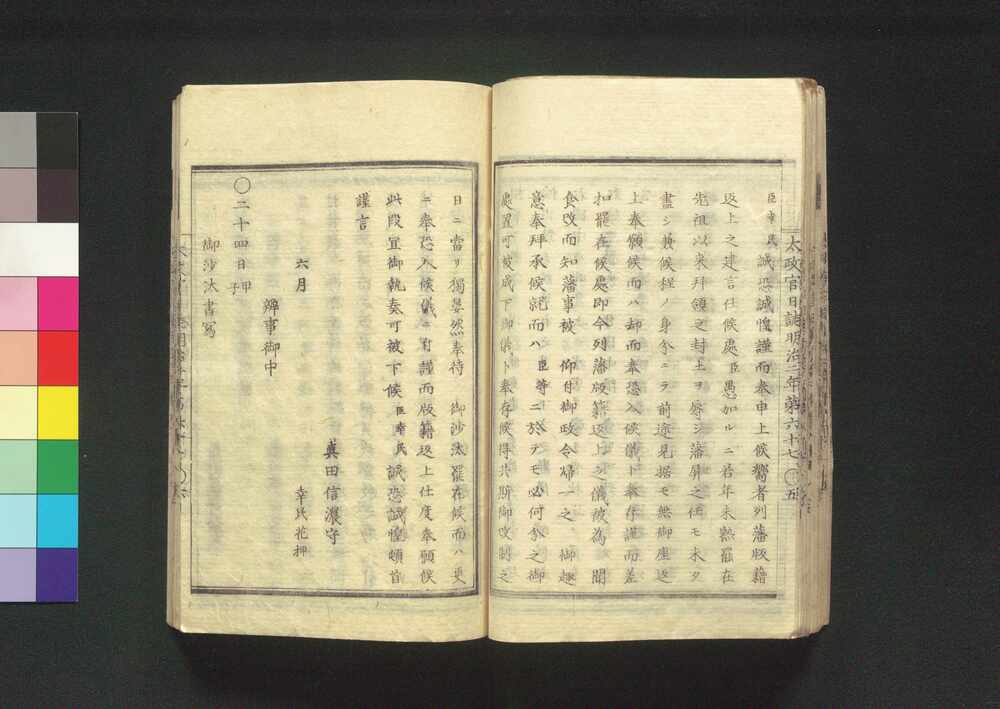 太政官日誌明治二年第六十七 〇五
臣幸民誠恐誠惶謹而奉申上候嚮者列藩版籍
返上之建言仕候處臣愚加ルニ若年未熟罷在
先祖以来拜領之封土ヲ辱シ藩屏之任モ未タ
盡シ兼候程ノ身分ニテ前途見据モ無御座返
上奉願候而ハ却而奉恐入候儀ト奉存謹而差
扣罷在候處即今列藩版籍返上之儀被為 聞
食改而知藩事被 仰付御政令帰一之 御趣
意奉拜承候就而ハ臣等ニ於テモ必何分之御
處置可被成下御儀ト奉存候得共斯御改制之
日ニ當リ獨晏然奉待 御沙汰罷在候而ハ更
ニ奉恐入候儀ニ付謹而版籍返上仕度奉願候
此段宜御執奏可被下候臣幸民誠恐誠惶頓首
謹言
六月 真田信濃守
幸民花押
辨事御中
〇二十四日甲子
御沙汰書寫